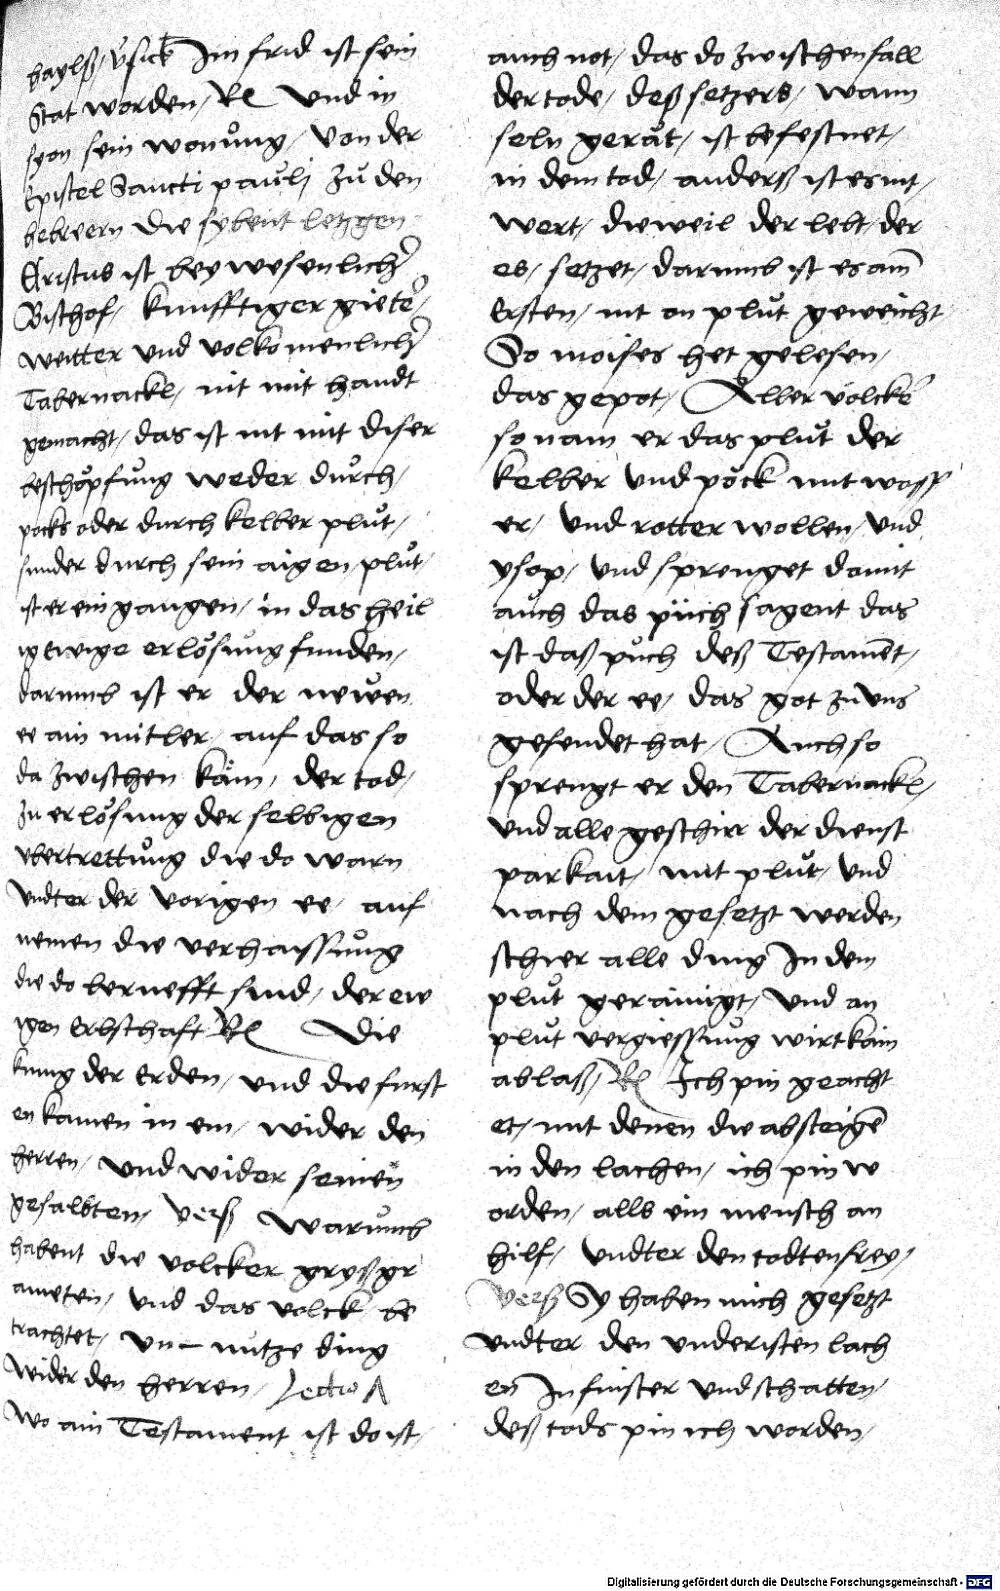 haylß / v̊sick Im frid ist sein
Stat worden / Re Vnd in
syon sein wonůng / Von der
Epistel Sancti paůlj zů den
hebreern Die sybent letzgen
Cristus ist bey wesenlicher
Bischof / kunfftiger gieter /
weitter vnd volkomenlicher
Tabernackl / nit mit handt
gemacht / das ist nit mit diser
beschöpfůng weder důrch /
pocks oder durch kelber plůt /
sunder durch sein aigen plůt /
ist er ein gangen / in das heil
ig ewige erlösůng funden /
darumb ist er der newen
ee ain mitler / auf das so
da zwischen käm / der tod /
zu erlösung der selbigen
vbertrettůng die do warn
vndter der vorigen ee / auf
nemen die verhaissůng
die do bernefft sind / der ew
igen Erbschaft Re Die
kunig der Erden / vnd die furst
en kamen in ein / wider den
herren / vnd wider seinen
gesalbten / Verß Warůmb
habent die volcker gryßgr
ameten / vnd das volck be
trachtet / vn- nutze ding
wider den herren / Lectio
Wo ain Testament ist do ist /
auch not / das do zwischen fall
der tode / deß setzers / wann
seln gerät / ist befestnet /
in dem tod / anderß ist es nit /
wert / dieweil der lebt / der
es / setzet / darumb ist es am
Ersten / nit on plůt geweicht
So moises het gelesen /
das gepot / Aller völcker
so nam er das plůt der
kelber vnd pöck mit wass
er / vnd rotter wollen / vnd
ysop / vnd sprenget damit
auch das püch sagent das
ist daß půch deß Testament /
oder der ee / das got zů vns
gesendet hat / Auch so
sprengt er den Tabernackl /
vnd alle geschirr der dienst
parkait / mit plůt / vnd
nach dem gesetzt werden
schier alle ding In dem
plůt gerainigt / vnd an
plůt vergiessůng wirt kain
ablaß / Re Ich pin geacht
et / mit denen die absteigen
in den lachen / ich pin w
orden / alls ein mensch an
hilf / vndter den todten frey /
Verß Sy haben mich gesetzt
vndter den vnderisten lach
en In finster vnd schatten /
deß tods pin ich worden /
Digitalisierung gefördert durch die Deutsche Forschungsgemeinschaft - DFG